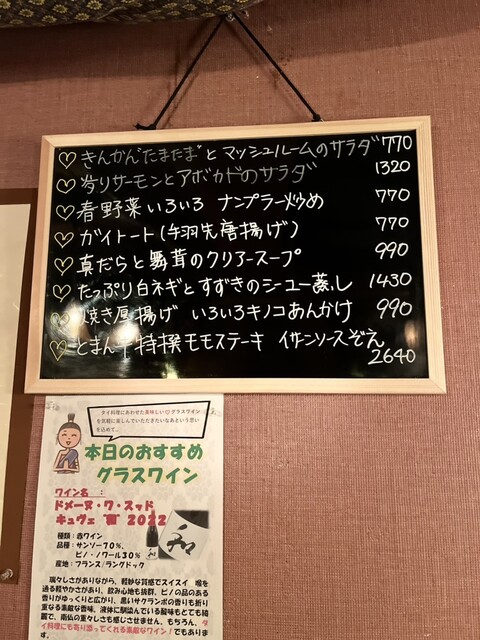 きんかん"たまたま"と マッシュルームのサラダ 770
炙りサーモンとアボカドのサラダ 1320
春野菜いろいろ ナンプラー炒め 770
ガイトート(手羽先唐揚げ) 770
真だらと舞茸のクリアースープ 990
たっぷり白ネギとすずきのシーユー蒸し 1430
焼き厚揚げ いろいろキノコあんかけ 990
とまん牛特撰モモステーキ イサーンソースぞえ
2640
タイ料理にあわせた美味しいグラスワイン
を気軽に楽しんでいただきたいなあという思い
を込めて…
本日のおすすめ
グラスワイン
ワイン名 :
ドメーヌ・ワ・スッド
キュヴェ 2022
種類:赤ワイン
品種:サンソー70%、
ピノ・ノワール30%
産地:フランス/ラングドック
和
瑞々しさがありながら、軽妙な質感でスイスイ 喉を
通る軽やかさがあり、飲み心地も抜群。ピノの品のある
香りがゆっくりと広がり、黒いサクランボの香りも折り
重なる素敵な香味。液体に馴染んでいる酸味もとても綺
麗で、南仏の重々しさも感じさせません。もちろん、タ
イ料理にも寄り添ってくれる素敵なワイン!でもありま
す。